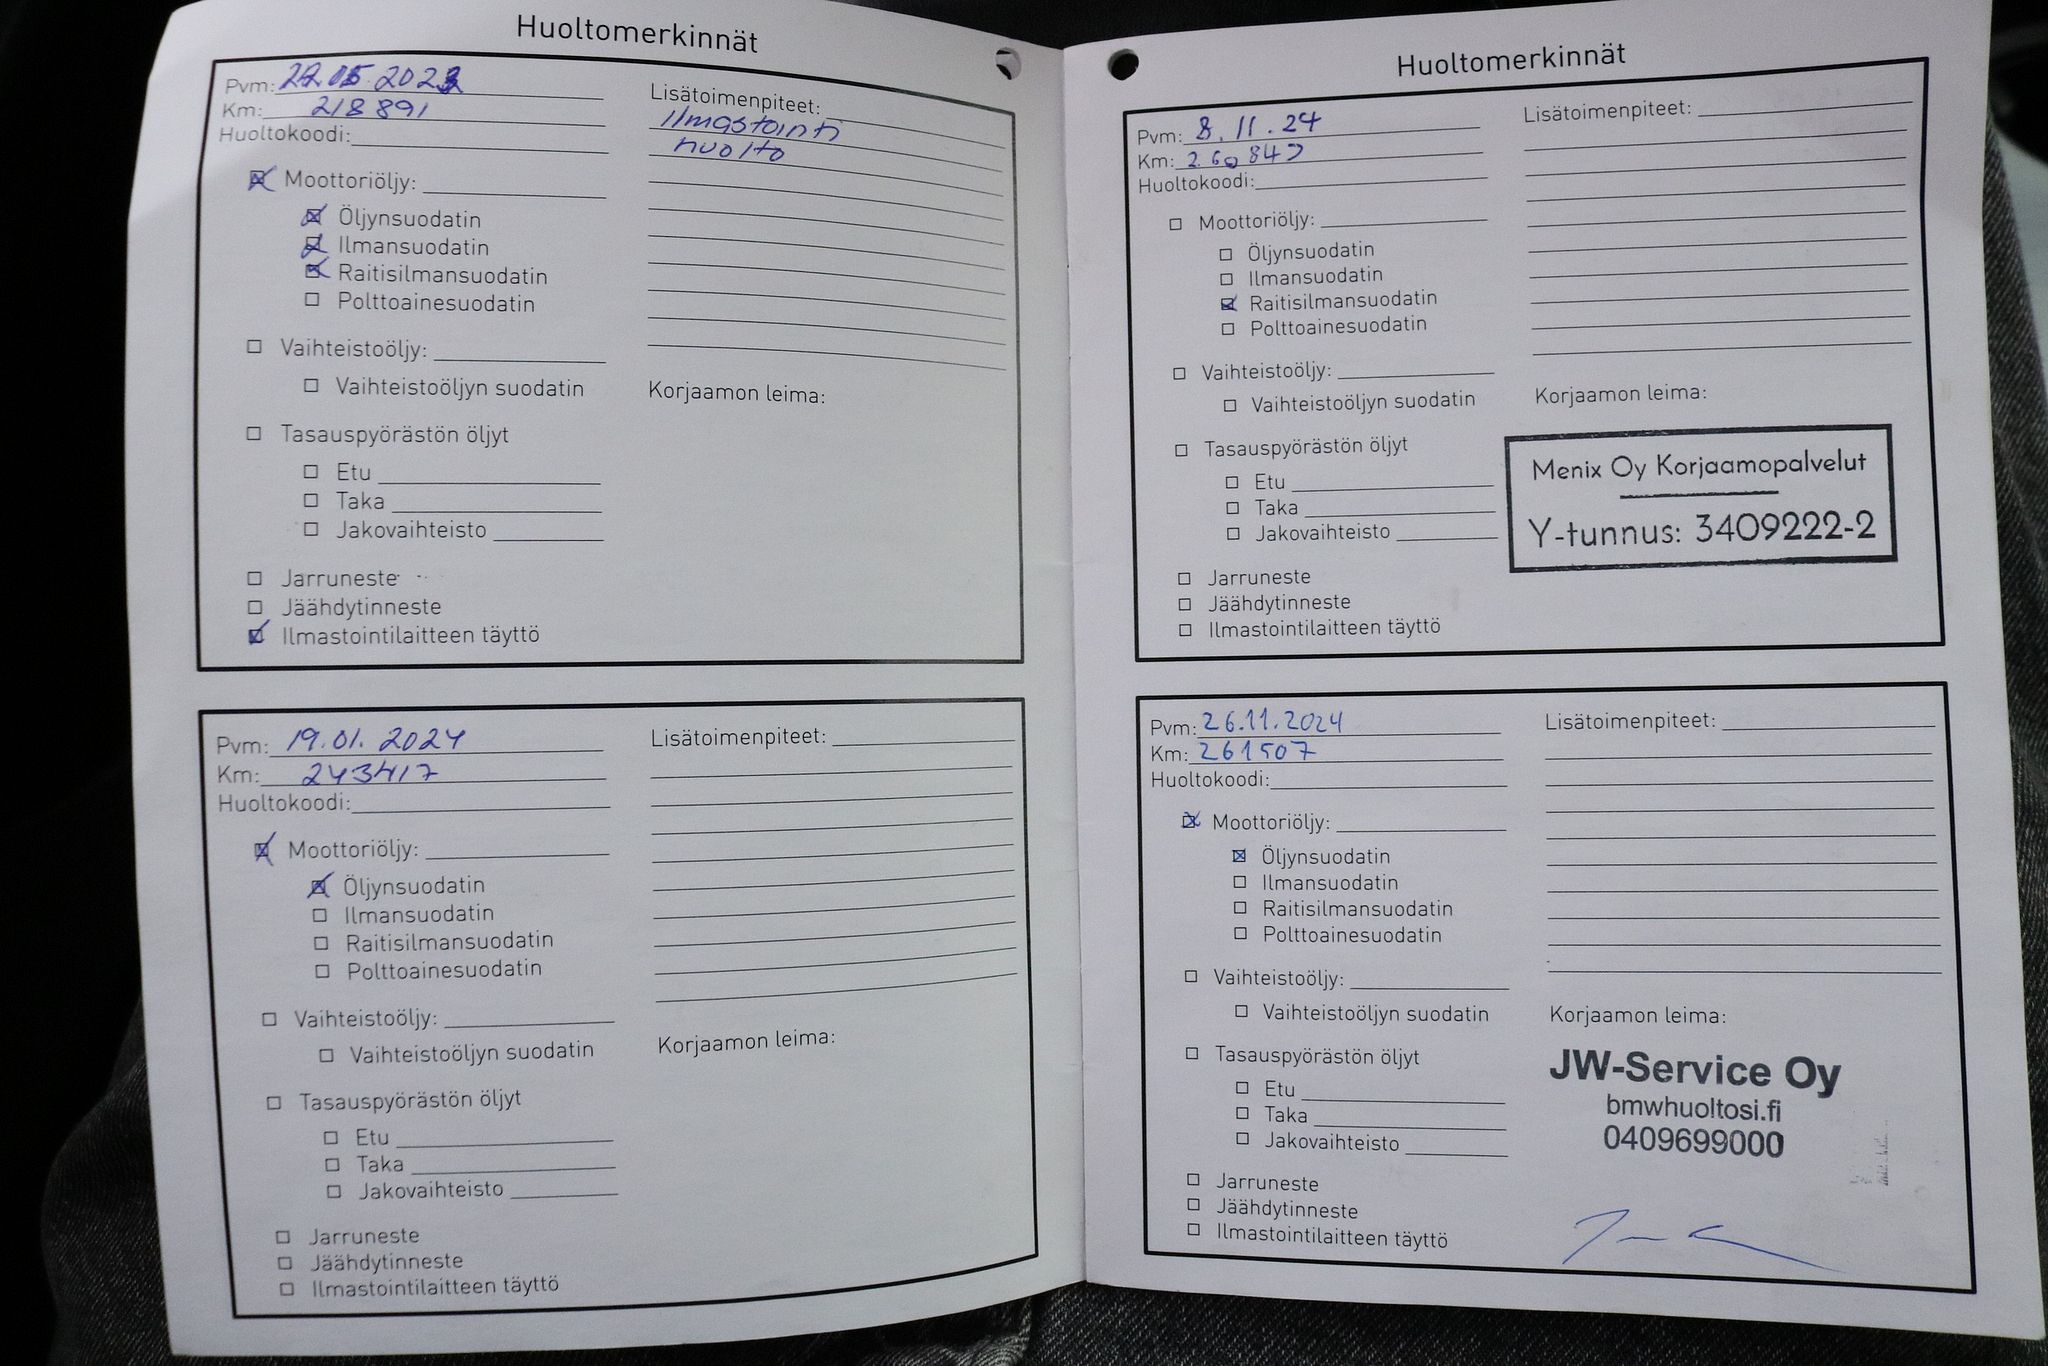 Huoltomerkinnät
Pvm: 22.05.2023
Km: 218 891
Huoltokoodi:
Moottoriöljy:
Öljynsuodatin
Ilmansuodatin
Raitisilmansuodatin
Polttoainesuodatin
Vaihteistoöljy:
Vaihteistoöljyn suodatin
Tasauspyörästön öljyt
Etu
Taka
Jakovaihteisto
Jarruneste
Jäähdytinneste
Ilmastointilaitteen täyttö
Lisätoimenpiteet:
Ilmastointi
huolto
Korjaamon leima:
Pvm: 19.01.2024
Km: 243417
Huoltokoodi:
Moottoriöljy:
Öljynsuodatin
Ilmansuodatin
Raitisilmansuodatin
Polttoainesuodatin
Vaihteistoöljy:
Vaihteistoöljyn suodatin
Tasauspyörästön öljyt
Etu
Taka
Jakovaihteisto
Jarruneste
Jäähdytinneste
Ilmastointilaitteen täyttö
Lisätoimenpiteet:
Korjaamon leima:
Huoltomerkinnät
Pvm: 8.11.24
Km:
Huoltokoodi:
Moottoriöljy:
Öljynsuodatin
Ilmansuodatin
Raitisilmansuodatin
Polttoainesuodatin
Vaihteistoöljy:
Vaihteistoöljyn suodatin
Tasauspyörästön öljyt
Etu
Taka
Jakovaihteisto
Jarruneste
Jäähdytinneste
Ilmastointilaitteen täyttö
Lisätoimenpiteet:
Korjaamon leima:
Menix Oy Korjaamopalvelut
Y-tunnus: 3409222-2
Pvm: 26.11.2024
Km: 261507
Huoltokoodi:
Moottoriöljy:
Öljynsuodatin
Ilmansuodatin
Raitisilmansuodatin
Polttoainesuodatin
Vaihteistoöljy:
Vaihteistoöljyn suodatin
Tasauspyörästön öljyt
Etu
Taka
Jakovaihteisto
Jarruneste
Jäähdytinneste
Ilmastointilaitteen täyttö
Lisätoimenpiteet:
Korjaamon leima:
JW-Service Oy
bmwhuoltosi.fi
0409699000